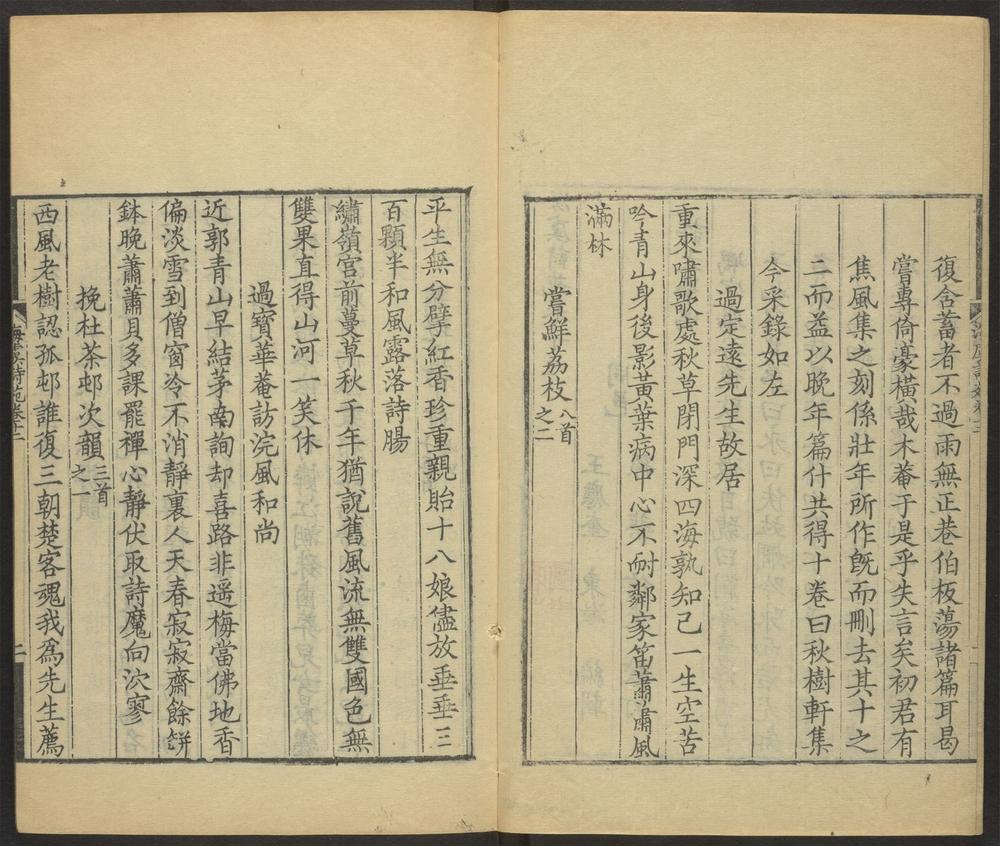 復含蓄者不過雨無正巷伯板蕩諸篇耳曷
嘗專倚豪橫哉木菴于是乎失言矣初君有
焦風集之刻係壯年所作旣而刪去其十之
二而益以晚年篇什共得十卷曰秋樹軒集
今采錄如左
過定遠先生故居
重來嘯歌處秋草閉門深四海孰知己一生空苦
吟青山身後影黃葉病中心不耐鄰家笛蕭蕭風
滿林
嘗鮮荔枝八首之二
平生無分擘紅香珍重親貽十八娘儘放垂垂三
百顆半和風露落詩腸
繡嶺宮前蔓草秋千年猶說舊風流無雙國色無
雙果直得山河一笑休
過寶華菴訪浣風和尚
近郭青山早結茅南詢却喜路非遥梅當佛地香
偏淡雪到僧窗冷不消靜裏人天春寂寂齋餘餅
鉢晚蕭蕭貝多課罷禪心靜伏取詩魔向泬寥
挽杜茶邨次韻三首之一
西風老樹認孤邨誰復三朝楚客魂我爲先生薦
二